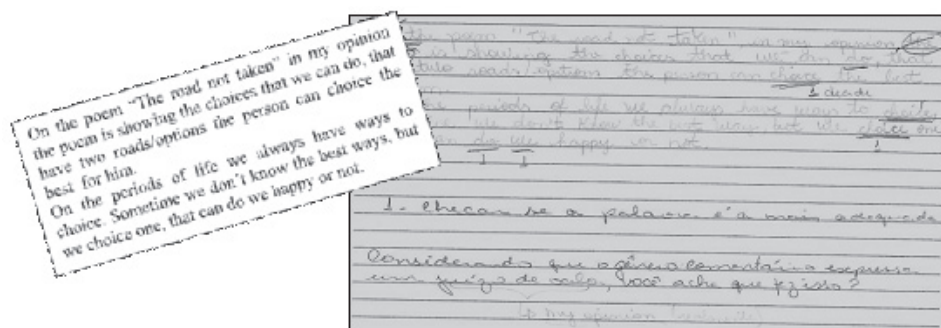 On the poem "The road not taken" in my opinion
the poem is showing the choices that we can do, that
have two roads/options the person can choice the
best for him.
On the periods of life we always have ways to
choice. Sometime we don't know the best ways, but
we choice one, that can do we happy or not.
the poem "The road not taken", in my opinion
is showing the choices that we can do, that
two roads/options the person can choice the best
1 decide
the periods of life we always have ways to
we don't know the best ways, but we choice one
do we happy or not.
1 1 1
1- Checar se a palavra é a mais adequada
Considerando que o gênero comentário expressa
um juízo de valor, você acha que fez isso?
my opinion